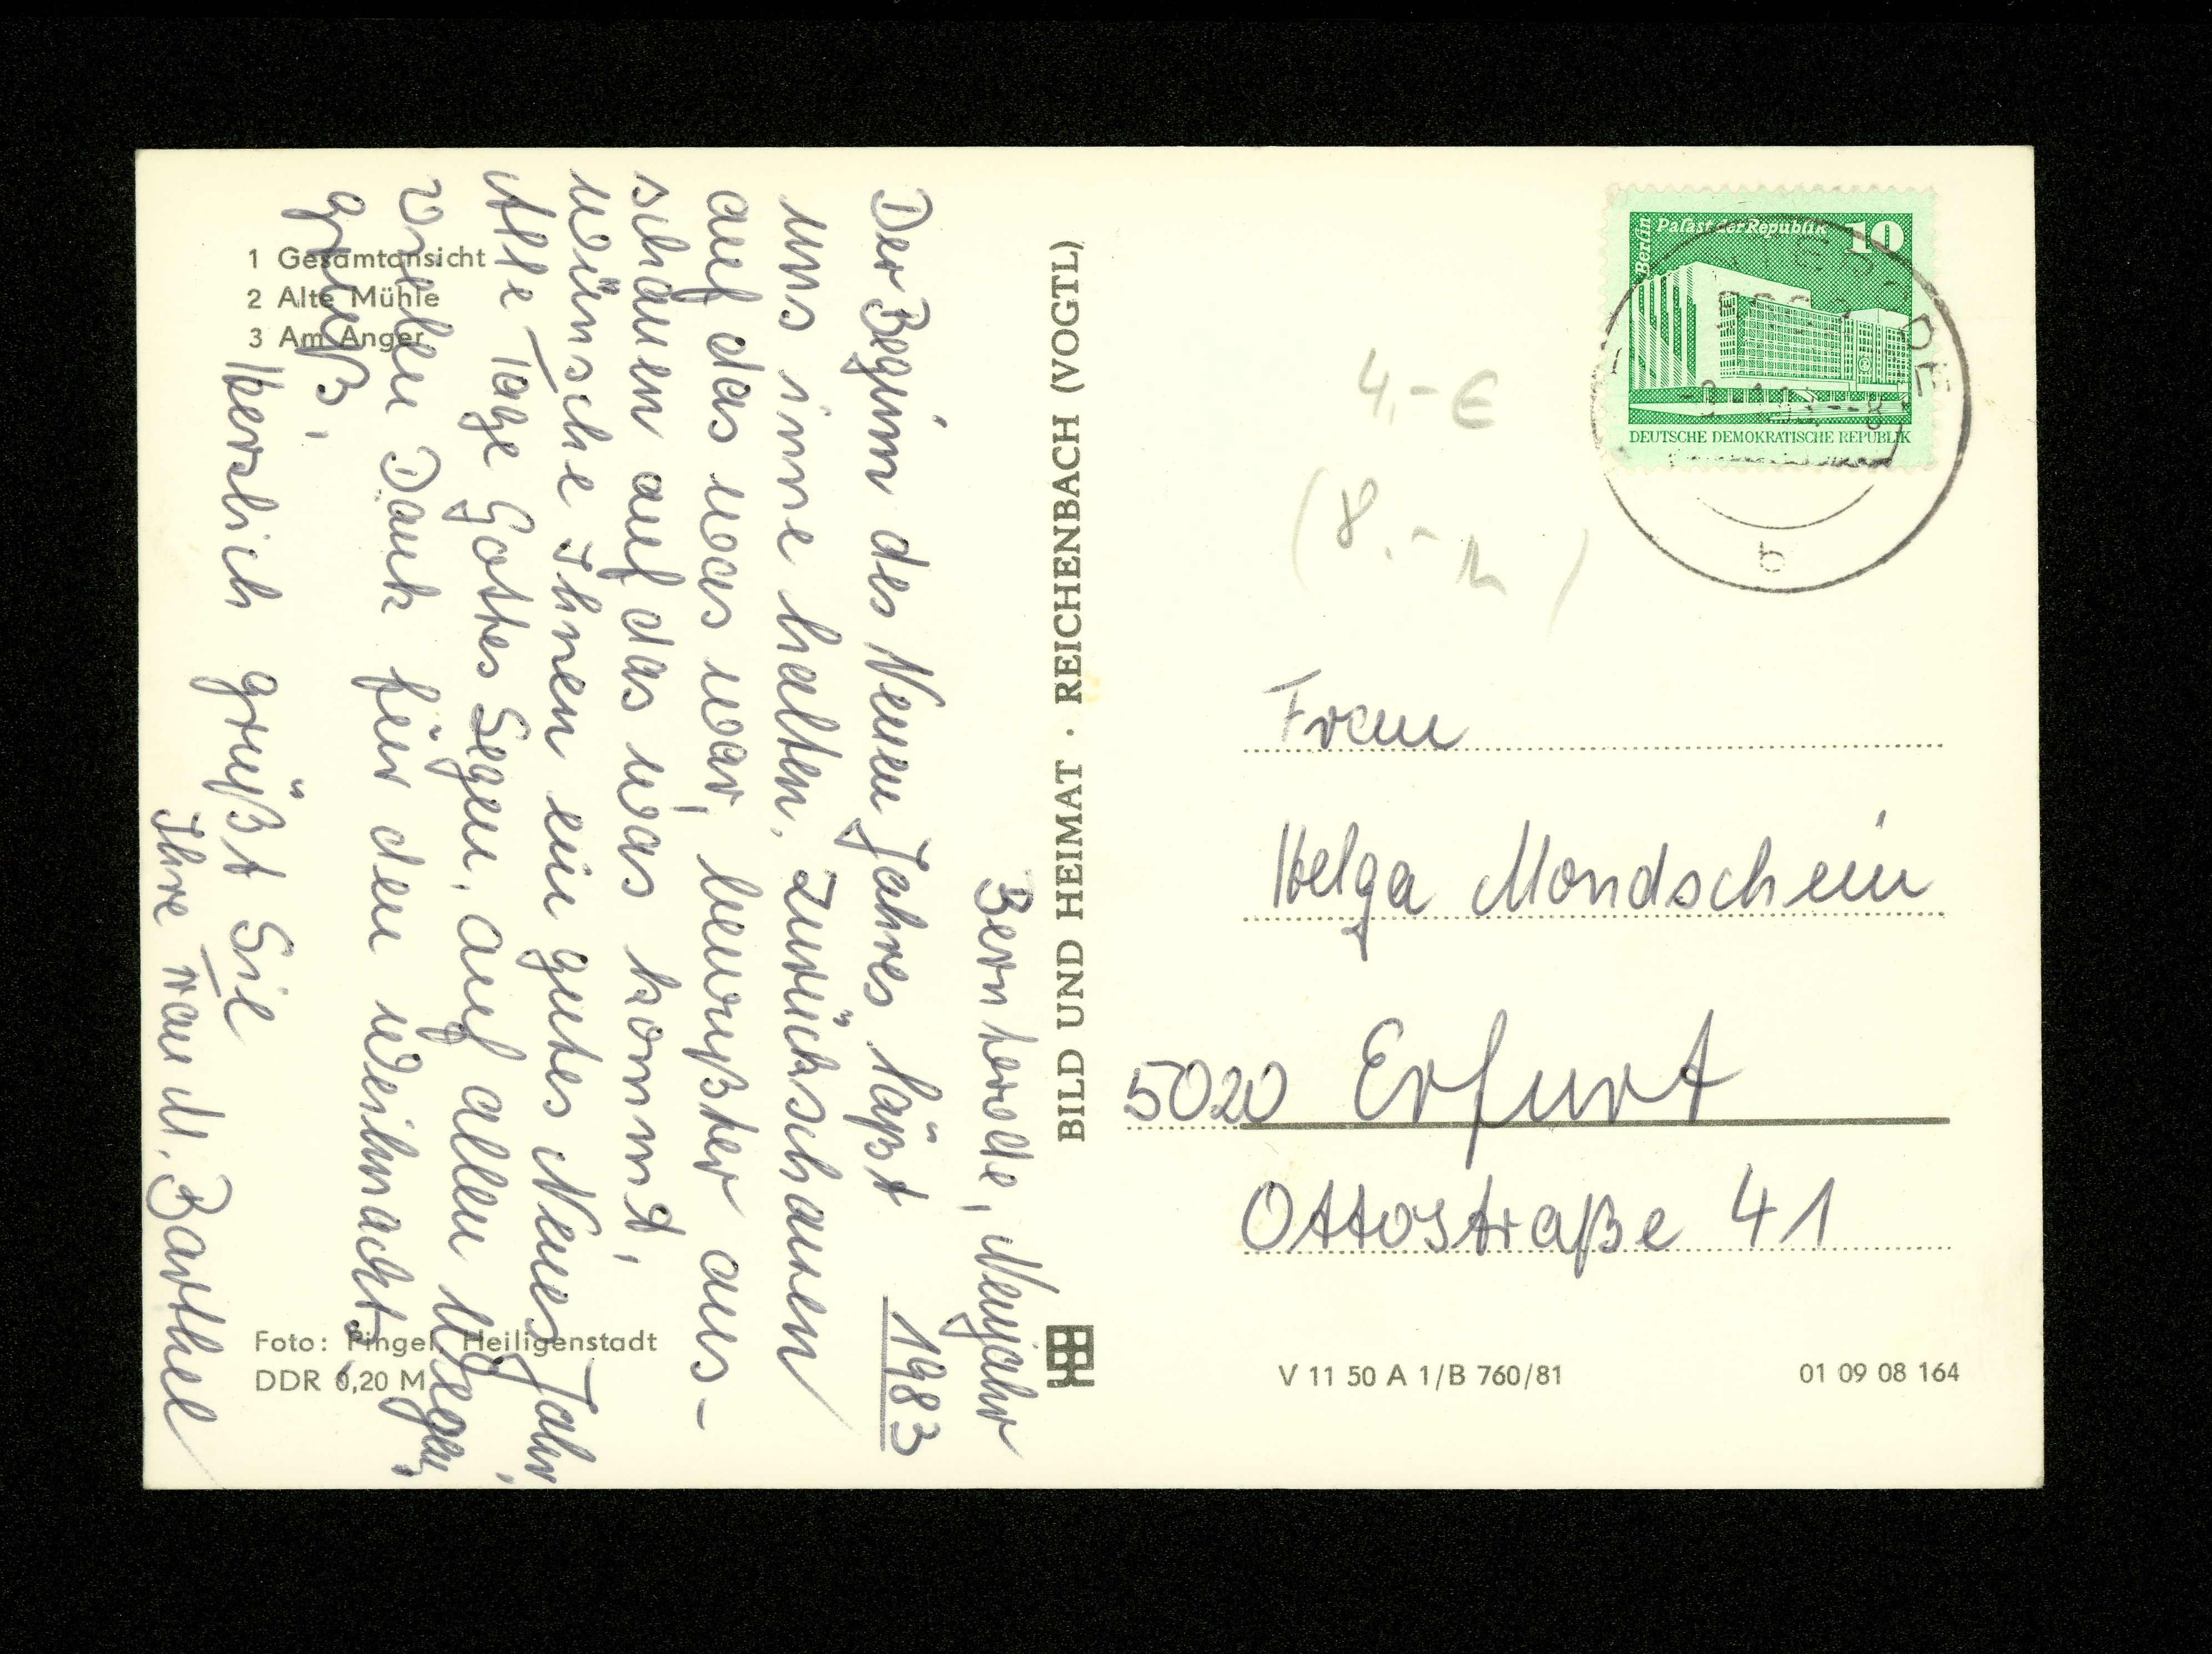 1 Gesamtansicht
2 Alte Mühle
3 Am Anger
Bernterode, Neujahr
1983
Der Beginn des Neuen Jahres läßt
uns inne halten, zurückschauen
auf das was war, bewußter aus-
schauen auf das was kommt,
wünsche Ihnen ein gutes Neues Jahr,
Alle Tage Gottes Segen, auf allen Wegen,
vielen Dank für den Weihnacht,
gruß,
Herzlich grüßt Sie
Ihre Frau M. Barthel
Foto: Pingel, Heiligenstadt
DDR 0,20 M
BILD UND HEIMAT · REICHENBACH (VOGTL)
Berlin
Palast der Republik
10
DEUTSCHE DEMOKRATISCHE REPUBLIK
4,- €
(8,-
)
Frau
Helga Mondschein
5020 Erfurt
Ottostraße 41
V 11 50 A 1/B 760/81
01 09 08 164